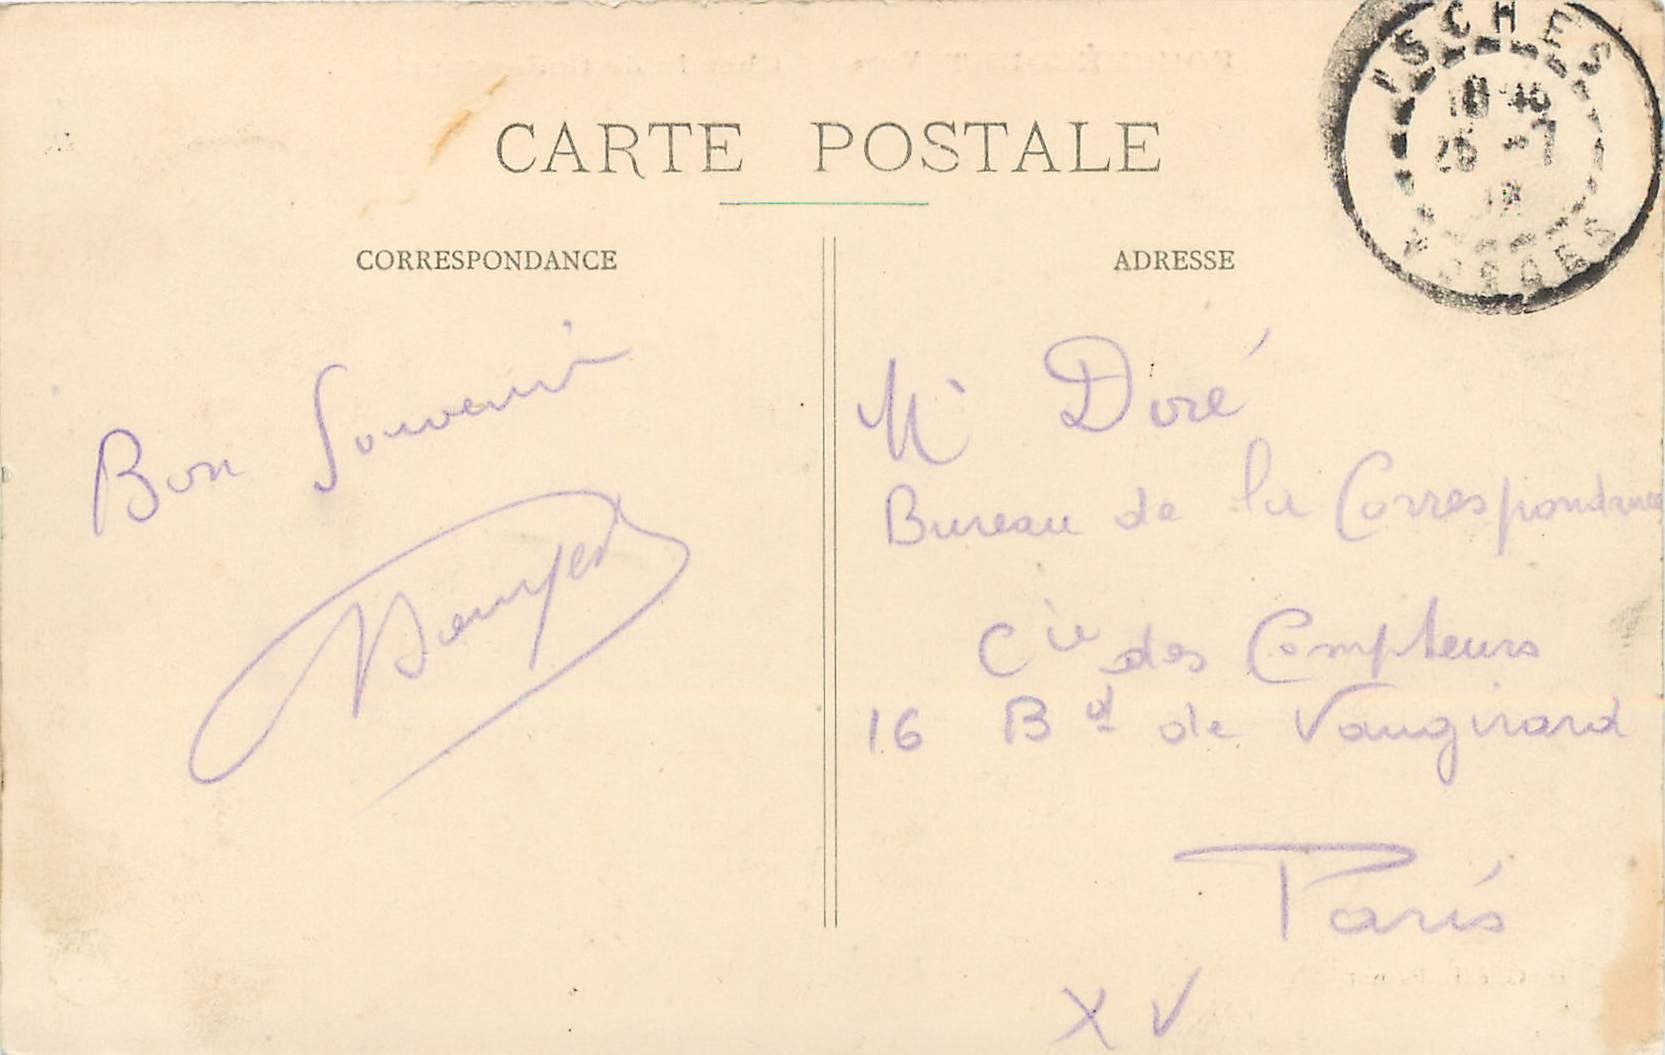 CARTE POSTALE
CORRESPONDANCE
ADRESSE
ISCHES
25 -7
VOSGES
Bon Souvenir
Mr Doré
Bureau de la Correspondance
Cie des Compteurs
16 Bd de Vaugirard
Paris
XV